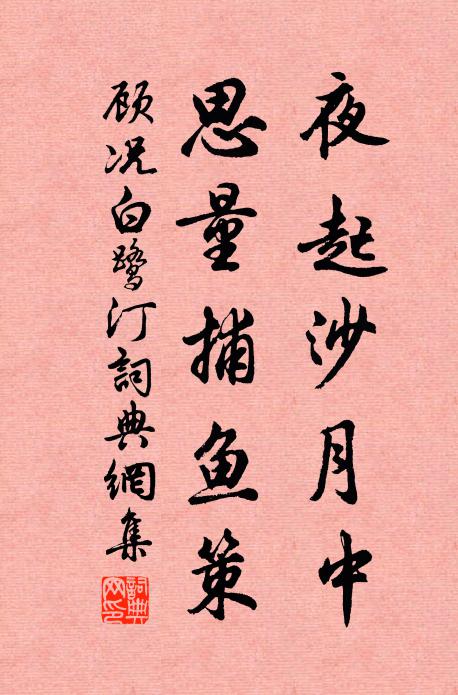 夜起沙月中
思量捕鱼策
顾况白鹭汀詞典網集
詞典网印